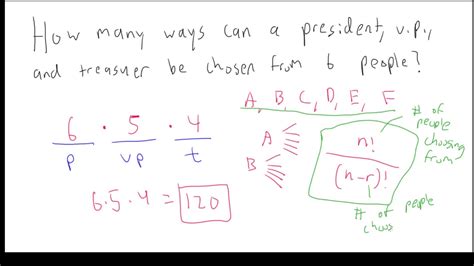 How many ways can a president, v.p.,
and treasurer be chosen from 6 people?
A, B, C, D, E, F
6 · 5 · 4
p vp t
6·5·4 = 120
A
B
n!
(n-r)!
# of
people
choosing
from
# of people
choos